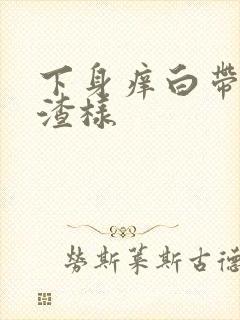 下身痒白带
渣様
劳斯莱斯古德